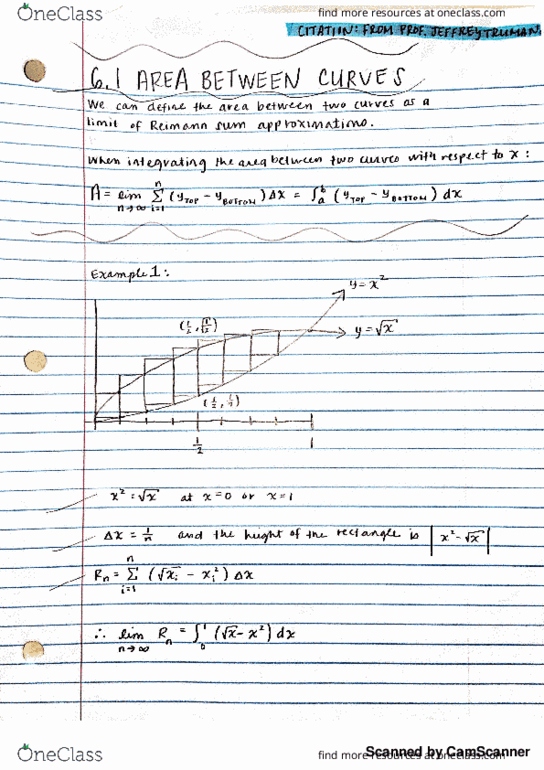 OneClass
find more resources at oneclass.com
CITATION: FROM PROF. JEFFREY TRUMAN.
6.1 AREA BETWEEN CURVES
We can define the area between two curves as a
limit of Reimann sum approximations.
When integrating the area between two curves with respect to x:
A = lim n→∞ Σ i=1 n (y TOP - y BOTTOM) Δx = ∫ a b (y TOP - y BOTTOM) dx
Example 1:
y = x²
(1/2, √1/2)
y = √x
(1/2, 1/4)
1/2
1
x² = √x at x=0 or x=1
Δx = 1/n and the height of the rectangle is |x² - √x|
Rn = Σ i=1 n (√xi - xi²) Δx
∴ lim n→∞ Rn = ∫ 0 1 (√x - x²) dx
OneClass
find more resources at oneclass.com
Scanned by CamScanner